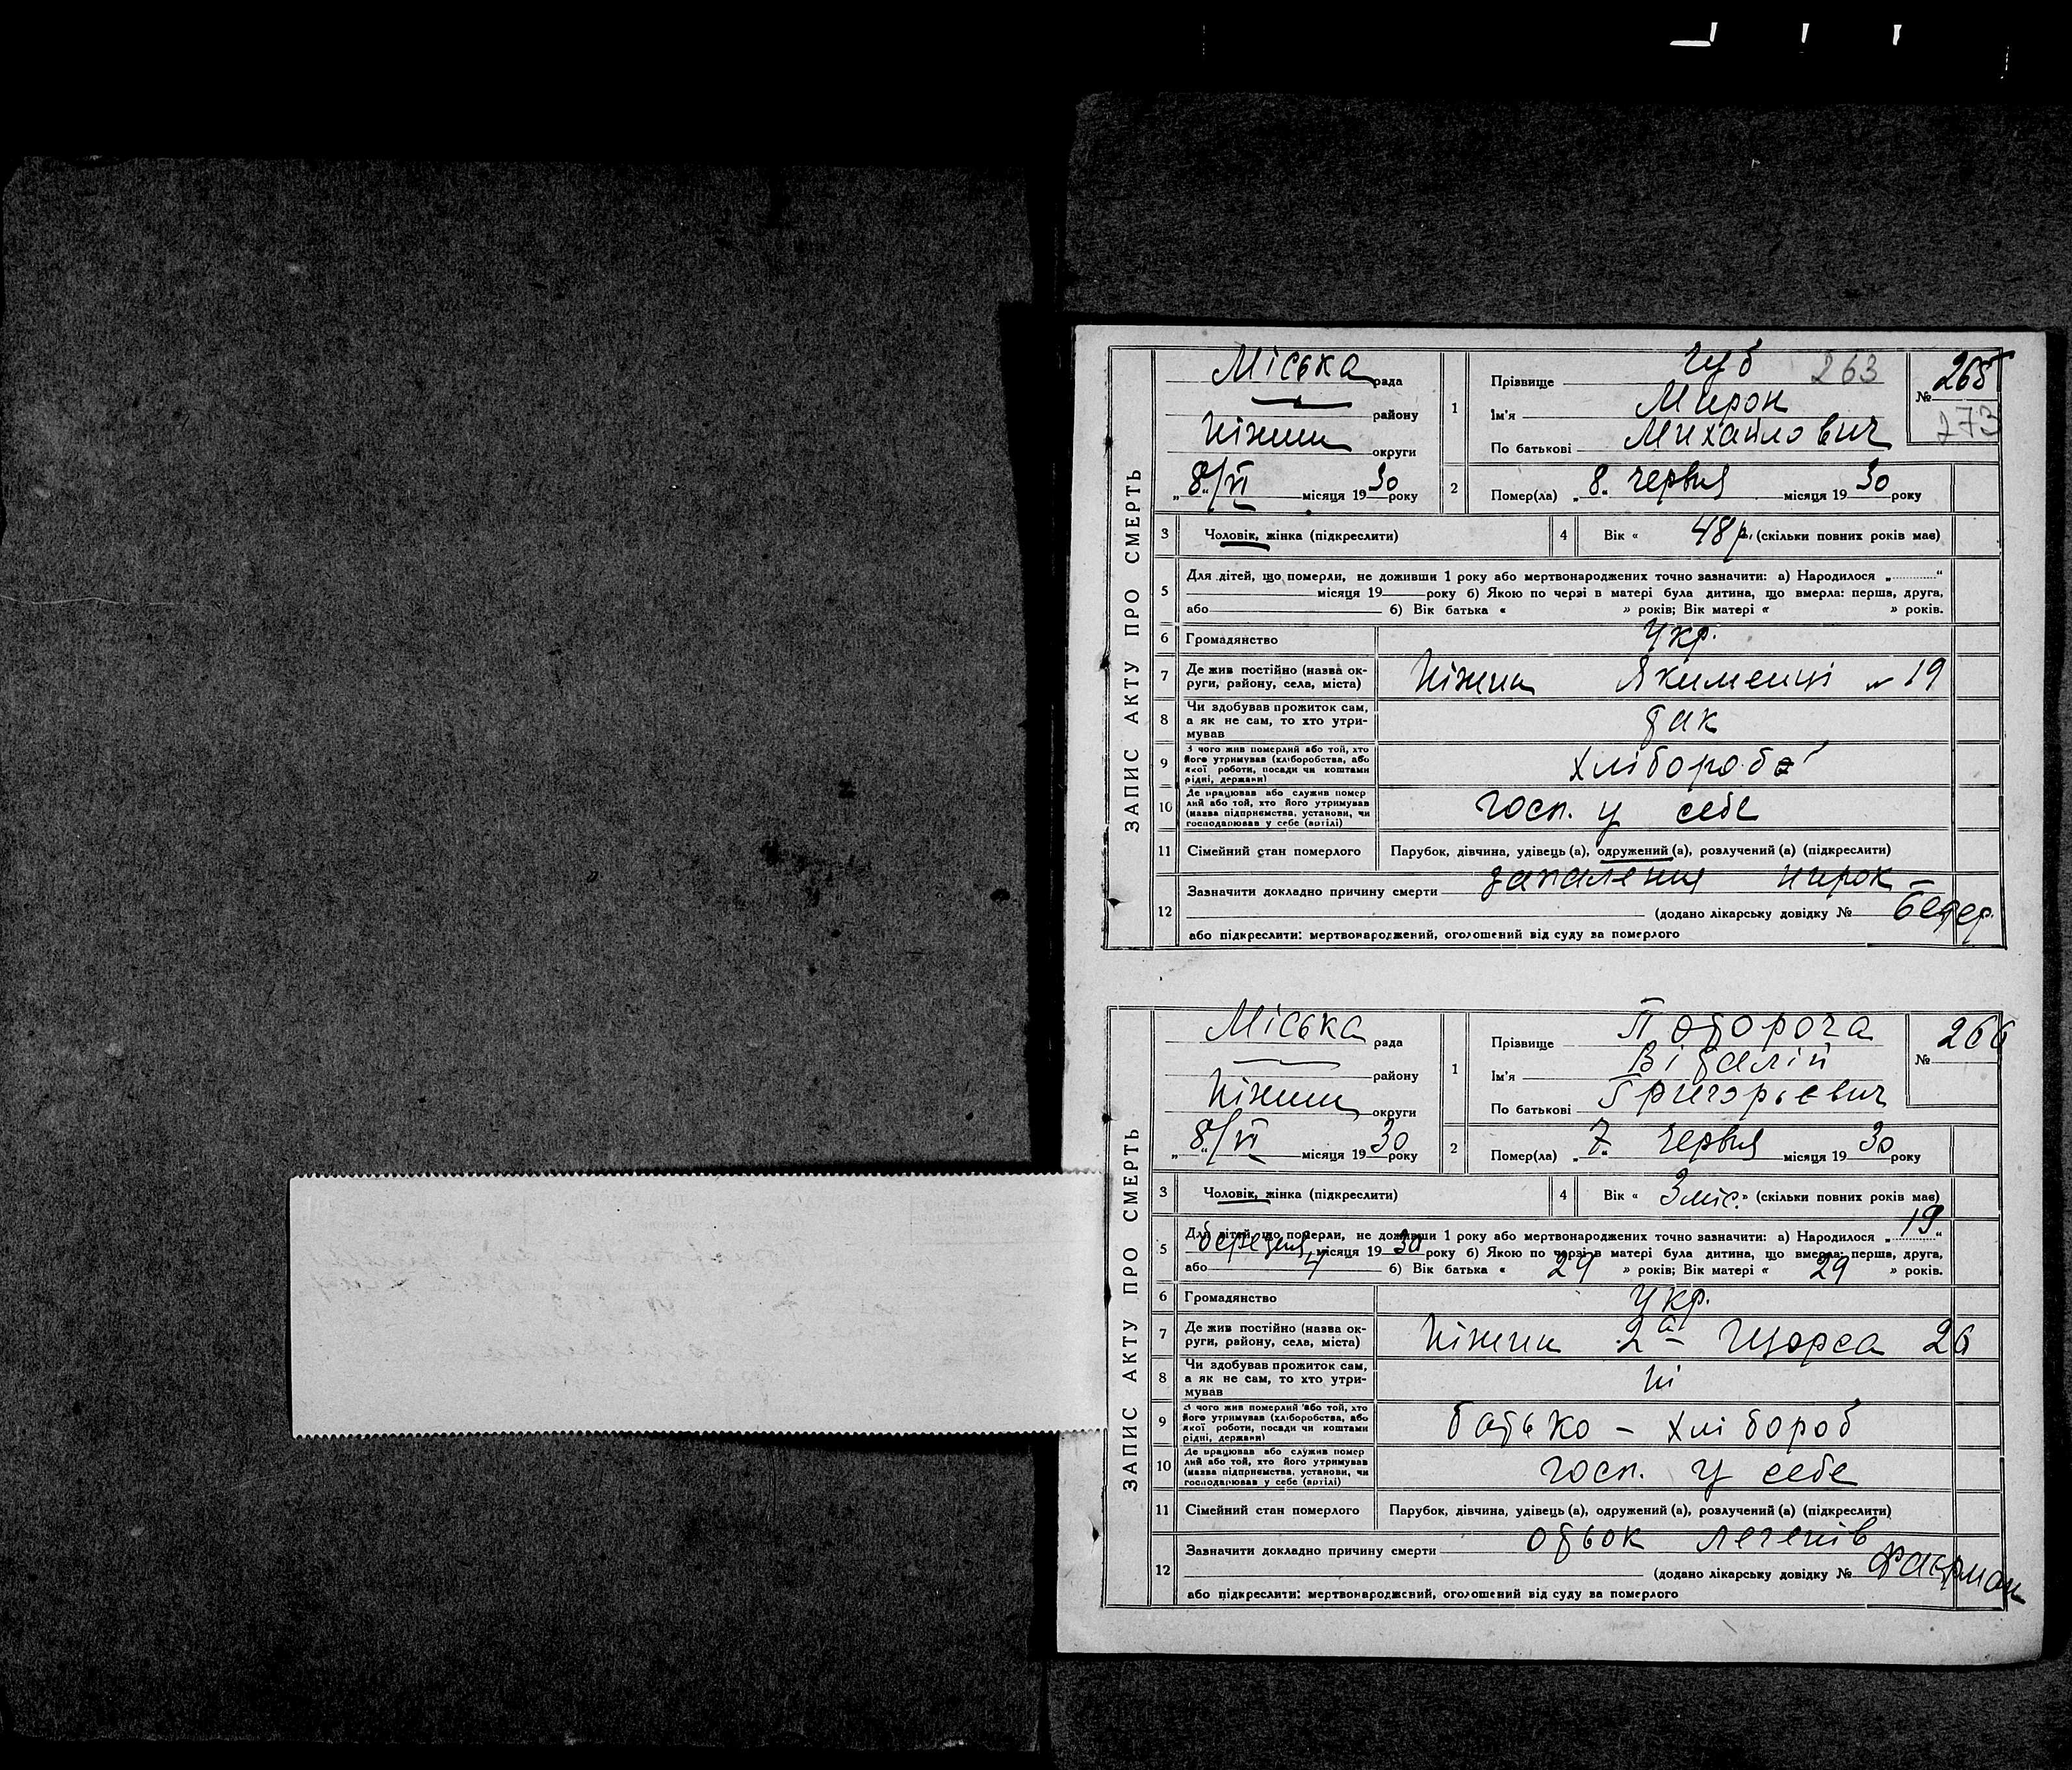 ЗАПИС АКТУ ПРО СМЕРТЬ
Міська рада
району
Ніжин округи
„8“/VI місяця 1930 року
1
Прізвище Чуб 263
Ім'я Мирон
По батькові Михайлович
№ 265
273
2 Помер(ла) „8“ червня місяця 1930 року
3 Чоловік, жінка (підкреслити)
4 Вік « 48 р. (скільки повних років мав)
5 Для дітей, що померли, не доживши 1 року або мертвонароджених точно зазначити: а) Народилося „ “
місяця 19 року б) Якою по черзі в матері була дитина, що вмерла: перша, друга,
або б) Вік батька « » років; Вік матері « » років.
6 Громадянство Укр.
7 Де жив постійно (назва округи, району, села, міста) Ніжин Якименці № 19
8 Чи здобував прожиток сам, а як не сам, то хто утримував так
9 З чого жив померлий або той, хто його утримував (хліборобства, або якої роботи, посади чи коштами рідні, держави) хлібороб
10 Де працював або служив померлий або той, хто його утримував (назва підприємства, установи, чи господарював у себе (артілі) госп. у себе
11 Сімейний стан померлого Парубок, дівчина, удівець (а), одружений (а), розлучений (а) (підкреслити)
12 Зазначити докладно причину смерти запалення нирок –
(додано лікарську довідку №
або підкреслити: мертвонароджений, оголошений від суду за померлого
ЗАПИС АКТУ ПРО СМЕРТЬ
Міська рада
району
Ніжин округи
„8“/VI місяця 1930 року
1
Прізвище Поторочa
Ім'я Віталій
По батькові Григорьєвич
№ 266
2 Помер(ла) „7“ червня місяця 1930 року
3 Чоловік, жінка (підкреслити)
4 Вік « 3 міс. » (скільки повних років мав)
5 Для дітей, що померли, не доживши 1 року або мертвонароджених точно зазначити: а) Народилося „19“
березня місяця 1930 року б) Якою по черзі в матері була дитина, що вмерла: перша, друга,
або 4 б) Вік батька « 29 » років; Вік матері « 29 » років.
6 Громадянство Укр.
7 Де жив постійно (назва округи, району, села, міста) Ніжин 2а – Щорса 26
8 Чи здобував прожиток сам, а як не сам, то хто утримував ні
9 З чого жив померлий або той, хто його утримував (хліборобства, або якої роботи, посади чи коштами рідні, держави) батько – хлібороб
10 Де працював або служив померлий або той, хто його утримував (назва підприємства, установи, чи господарював у себе (артілі) госп. у себе
11 Сімейний стан померлого Парубок, дівчина, удівець (а), одружений (а), розлучений (а) (підкреслити)
12 Зазначити докладно причину смерти отьок легенів
(додано лікарську довідку №
або підкреслити: мертвонароджений, оголошений від суду за померлого